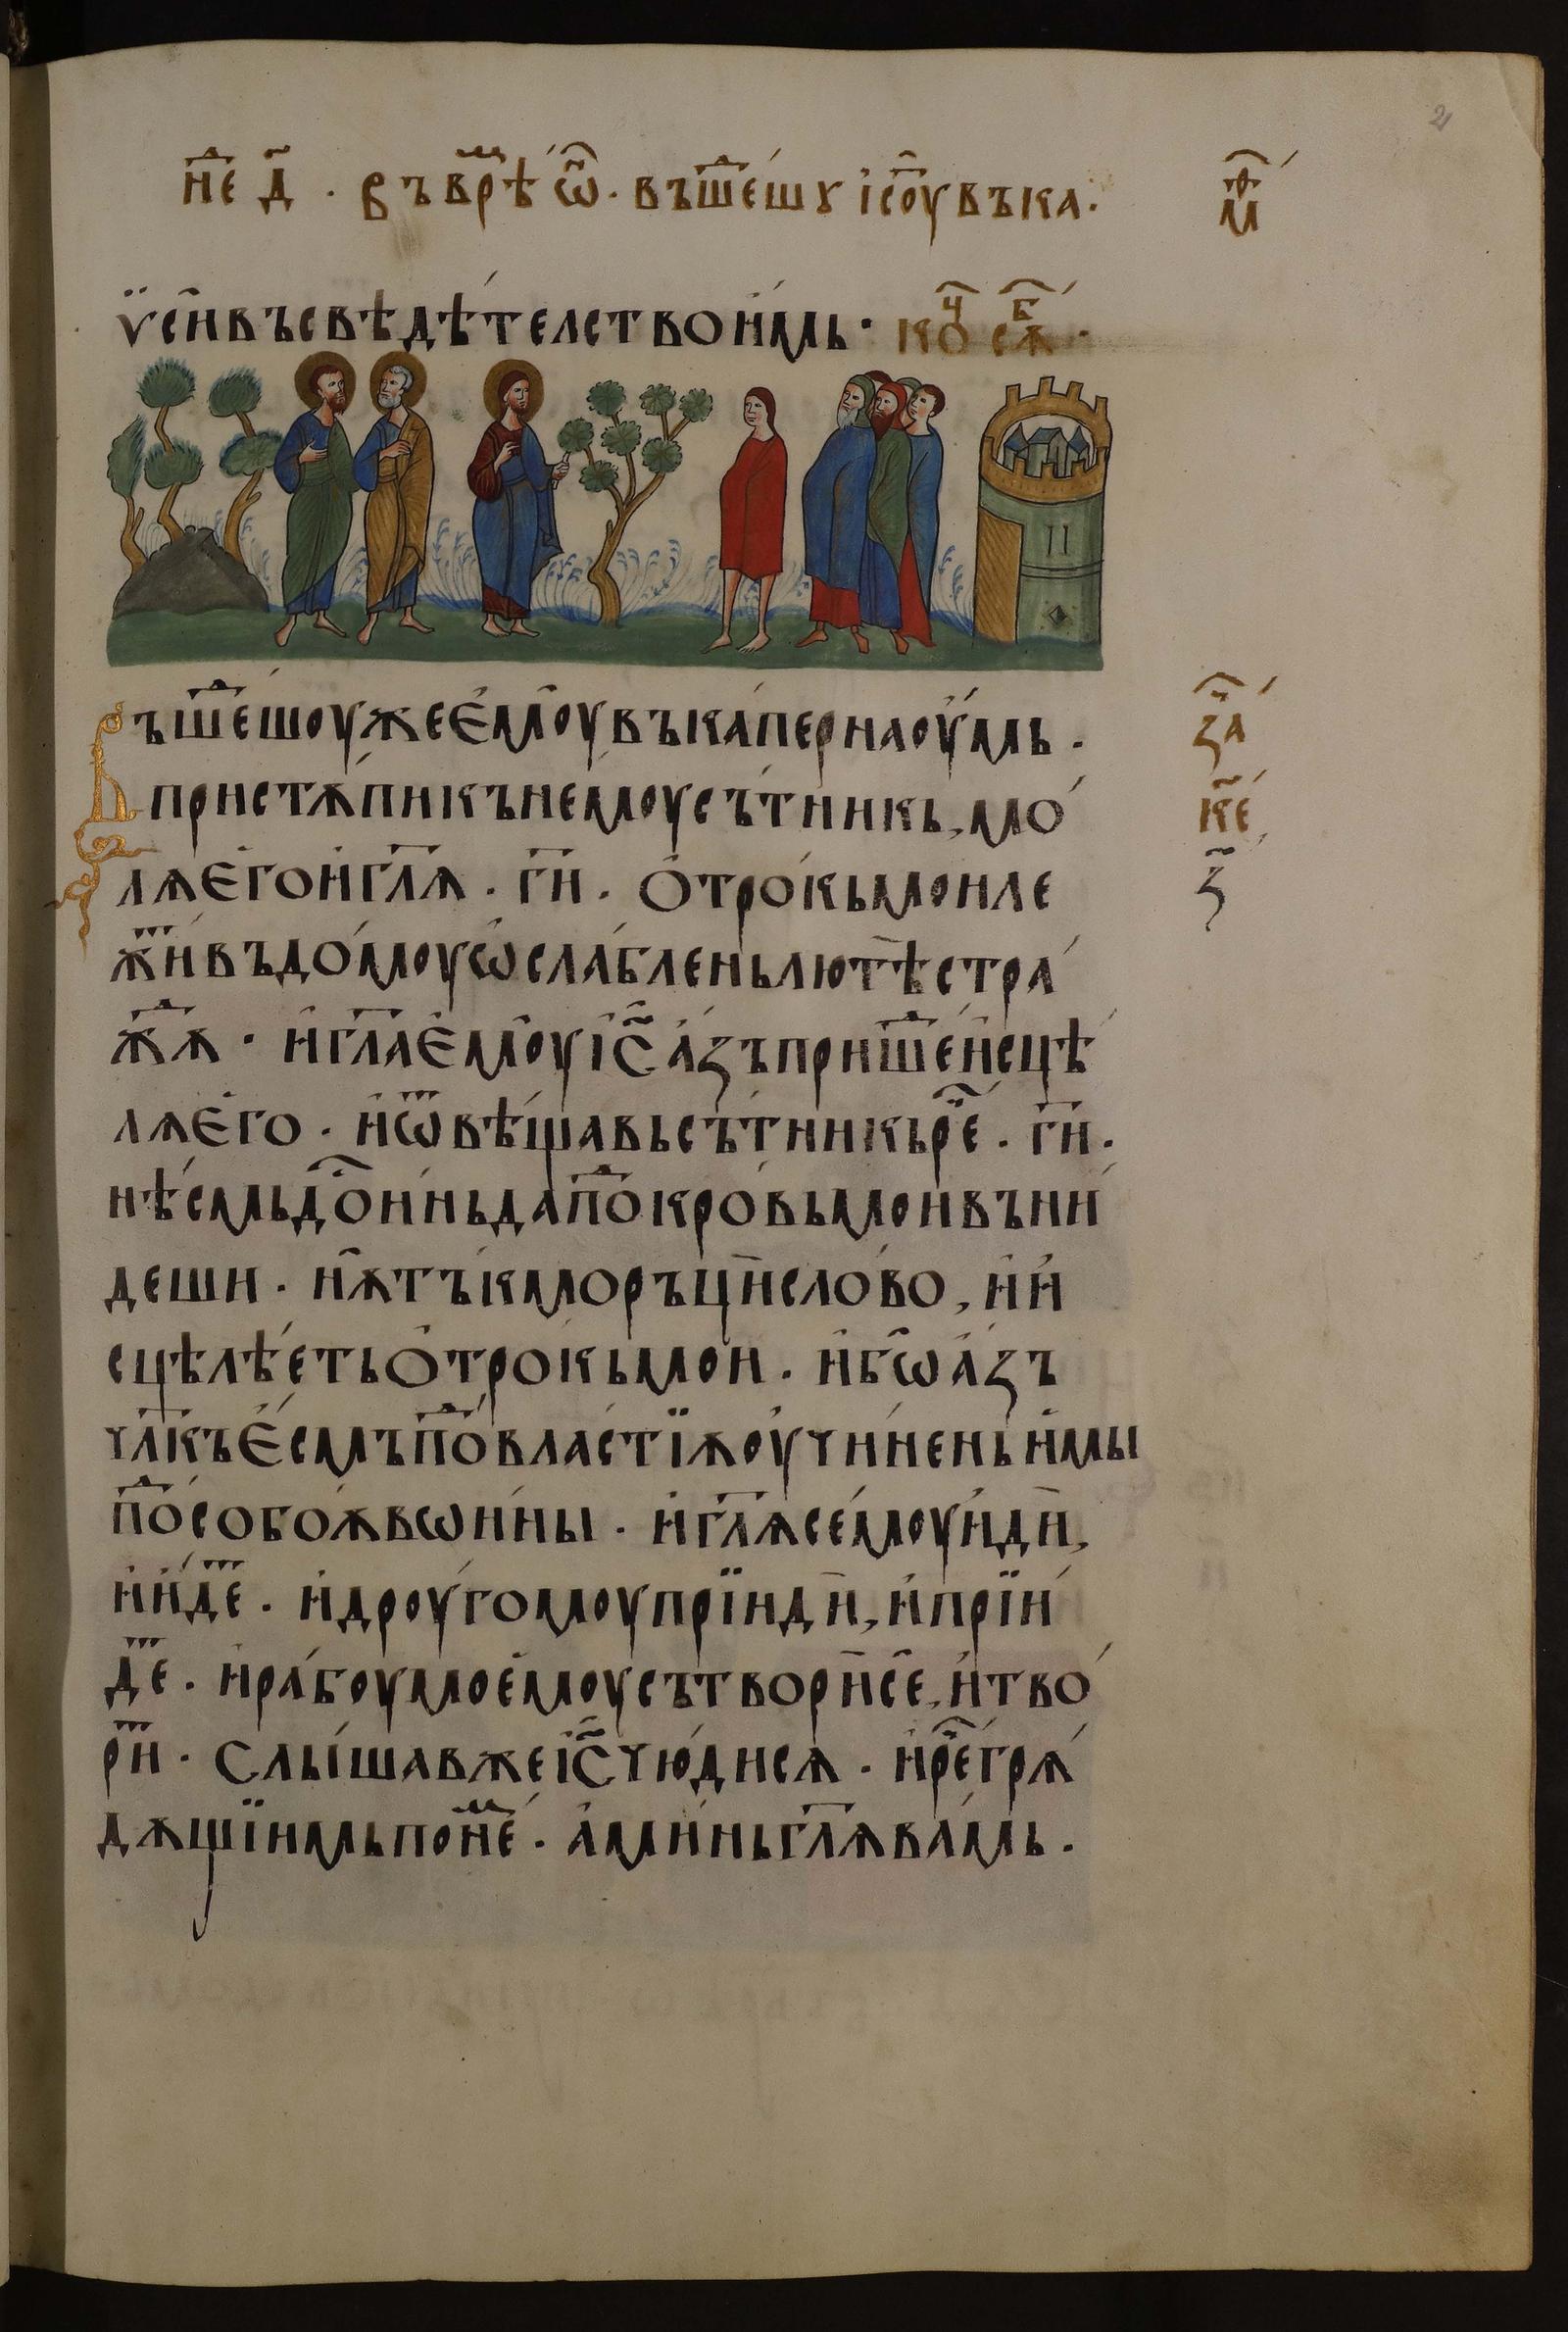 2
не҃д д҃ · въ врѣ́ѡ҃ · въше́шꙋ іс҃оу въ ка ·
м҃ѳ
ѵ̈сн҄ въ свѣдѣ́телство и҆́мь · ко҃ч сѫ҃б ·
Въше́шоу же є҆моу҄ въ капе́рнаоу́мь ·
за҃ч
пристѫ́пи къ немоу съ́тникь, мо́
к҃е
лѧ є҆го и҆ гл҃ѧ · ги҃ · ѻ҆тро́кь мои ле
з҃
жи҃т въ до́моу ѡ҆сла́блень лютѣ̀ стра́
жд҃ѧ · и҆ гл҃а є҆моу҄ іс҃ а҆́зъ прише҃д и҆сцѣ́
лѧ є҆го · и҆ ѿвѣ́щавь съ́тникь ре҃ч · ги҃ ·
нѣ́смь до҃стои́нь да по҃д кро́вь мои въни́
деши · нѫ҄ тъ́кмо ръцѝ сло́во, и҆ и҆
сцѣлѣ́еть ѻ҆тро́кь мои · и҆бѡ҄ а҆́зъ
чл҃къ є҆́смъ по҃д вла́стїѫ оу҆чи́нень и҆мы
по҃д собо́ѫ вѡи́ны · и҆ гл҃ѧ семоу́ и҆дѝ,
и҆ и҆́де҃т · и҆ дроу́гомоу прїидѝ, и҆ прїи́
де҃т · и҆ ра́боу моемоу сътворѝ се҄, и҆ тво́
ри҃т · Слы́шав же іс҃ чю́дисѧ · и҆ ре҃ч грѧ́
дѫщїимь по не҃м · а҆ми́нь гл҃ѧ ва́мь ·